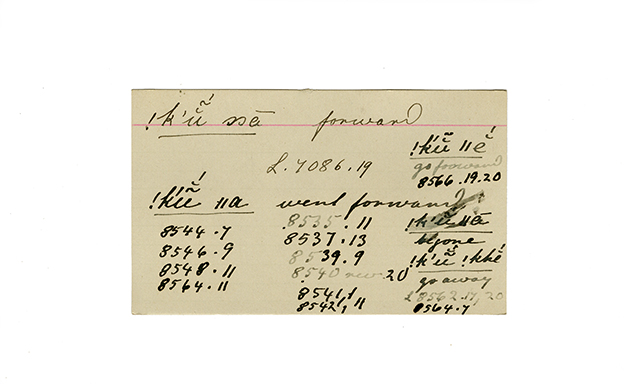 !k'ũ̋ sā forward
L. 7086.19
!k'ũ̋ ǁé
go forward
8566.19.20
!k'ũ̋ ǁa went forward
8544.7
8546.9
8548.11
8564.11
8535.11
8537.13
8539.9
8540 rev. 20
8541,1
8542,11
!k'ũ̋ ǁā
!k'ũ̋ !khé
go away
L 8562.17,20
8564.7